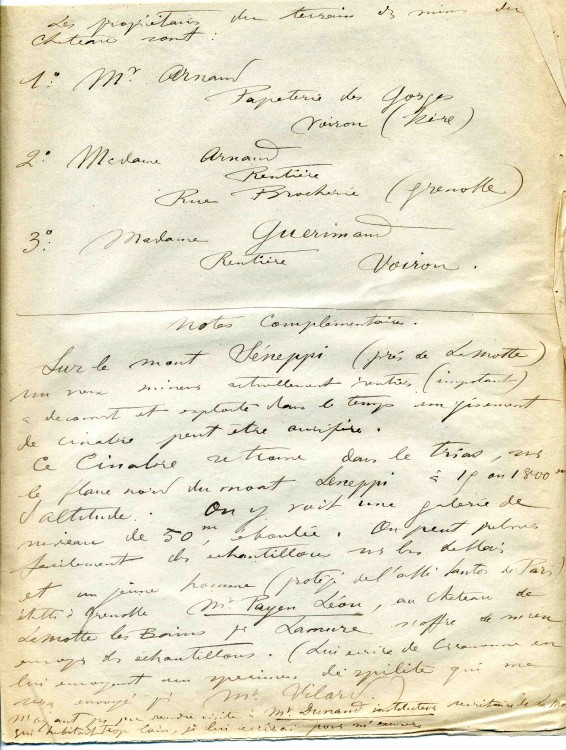 Les propriétaires du terrain des mines du
Chateau sont :
1º: Mr Arnaud
Papeterie des Gorges
Voiron (Isère)
2º: Madame Arnaud
Rentière
Rue Brocherie (Grenoble)
3º: Madame Guerimand
Rentière Voiron.
Notes Complémentaire.
Sur le mont Séneppi (près de La Motte)
un vieux mineur actuellement rentier (impotant)
a decouvert et exploité dans le temps un gisement
de cinabre peut etre aurifère.
Ce Cinabre se trouve dans le trias, sur
le flanc nord du mont Seneppi à 15 ou 1800m
d'altitude. On y voit une galerie de
niveau de 50m, éboulée. On peut
facilement des echantillons sur les deblais
et un jeune homme (protégé de l'abbé de Paris)
à Grenoble Mr Payen Léon, au Chateau de
La Motte les Bains pr Lamure s'offre de m'en
envoyer des échantillons. (Lui ecrire de en
lui envoyant un specimen de spilite qui me
sera envoyé pr Mr Vilard.)
N'ayant pas pu rendre visite à Mr Dunand instituteur secrétaire de la
qui habitait trop loin, je lui pour m'excuser